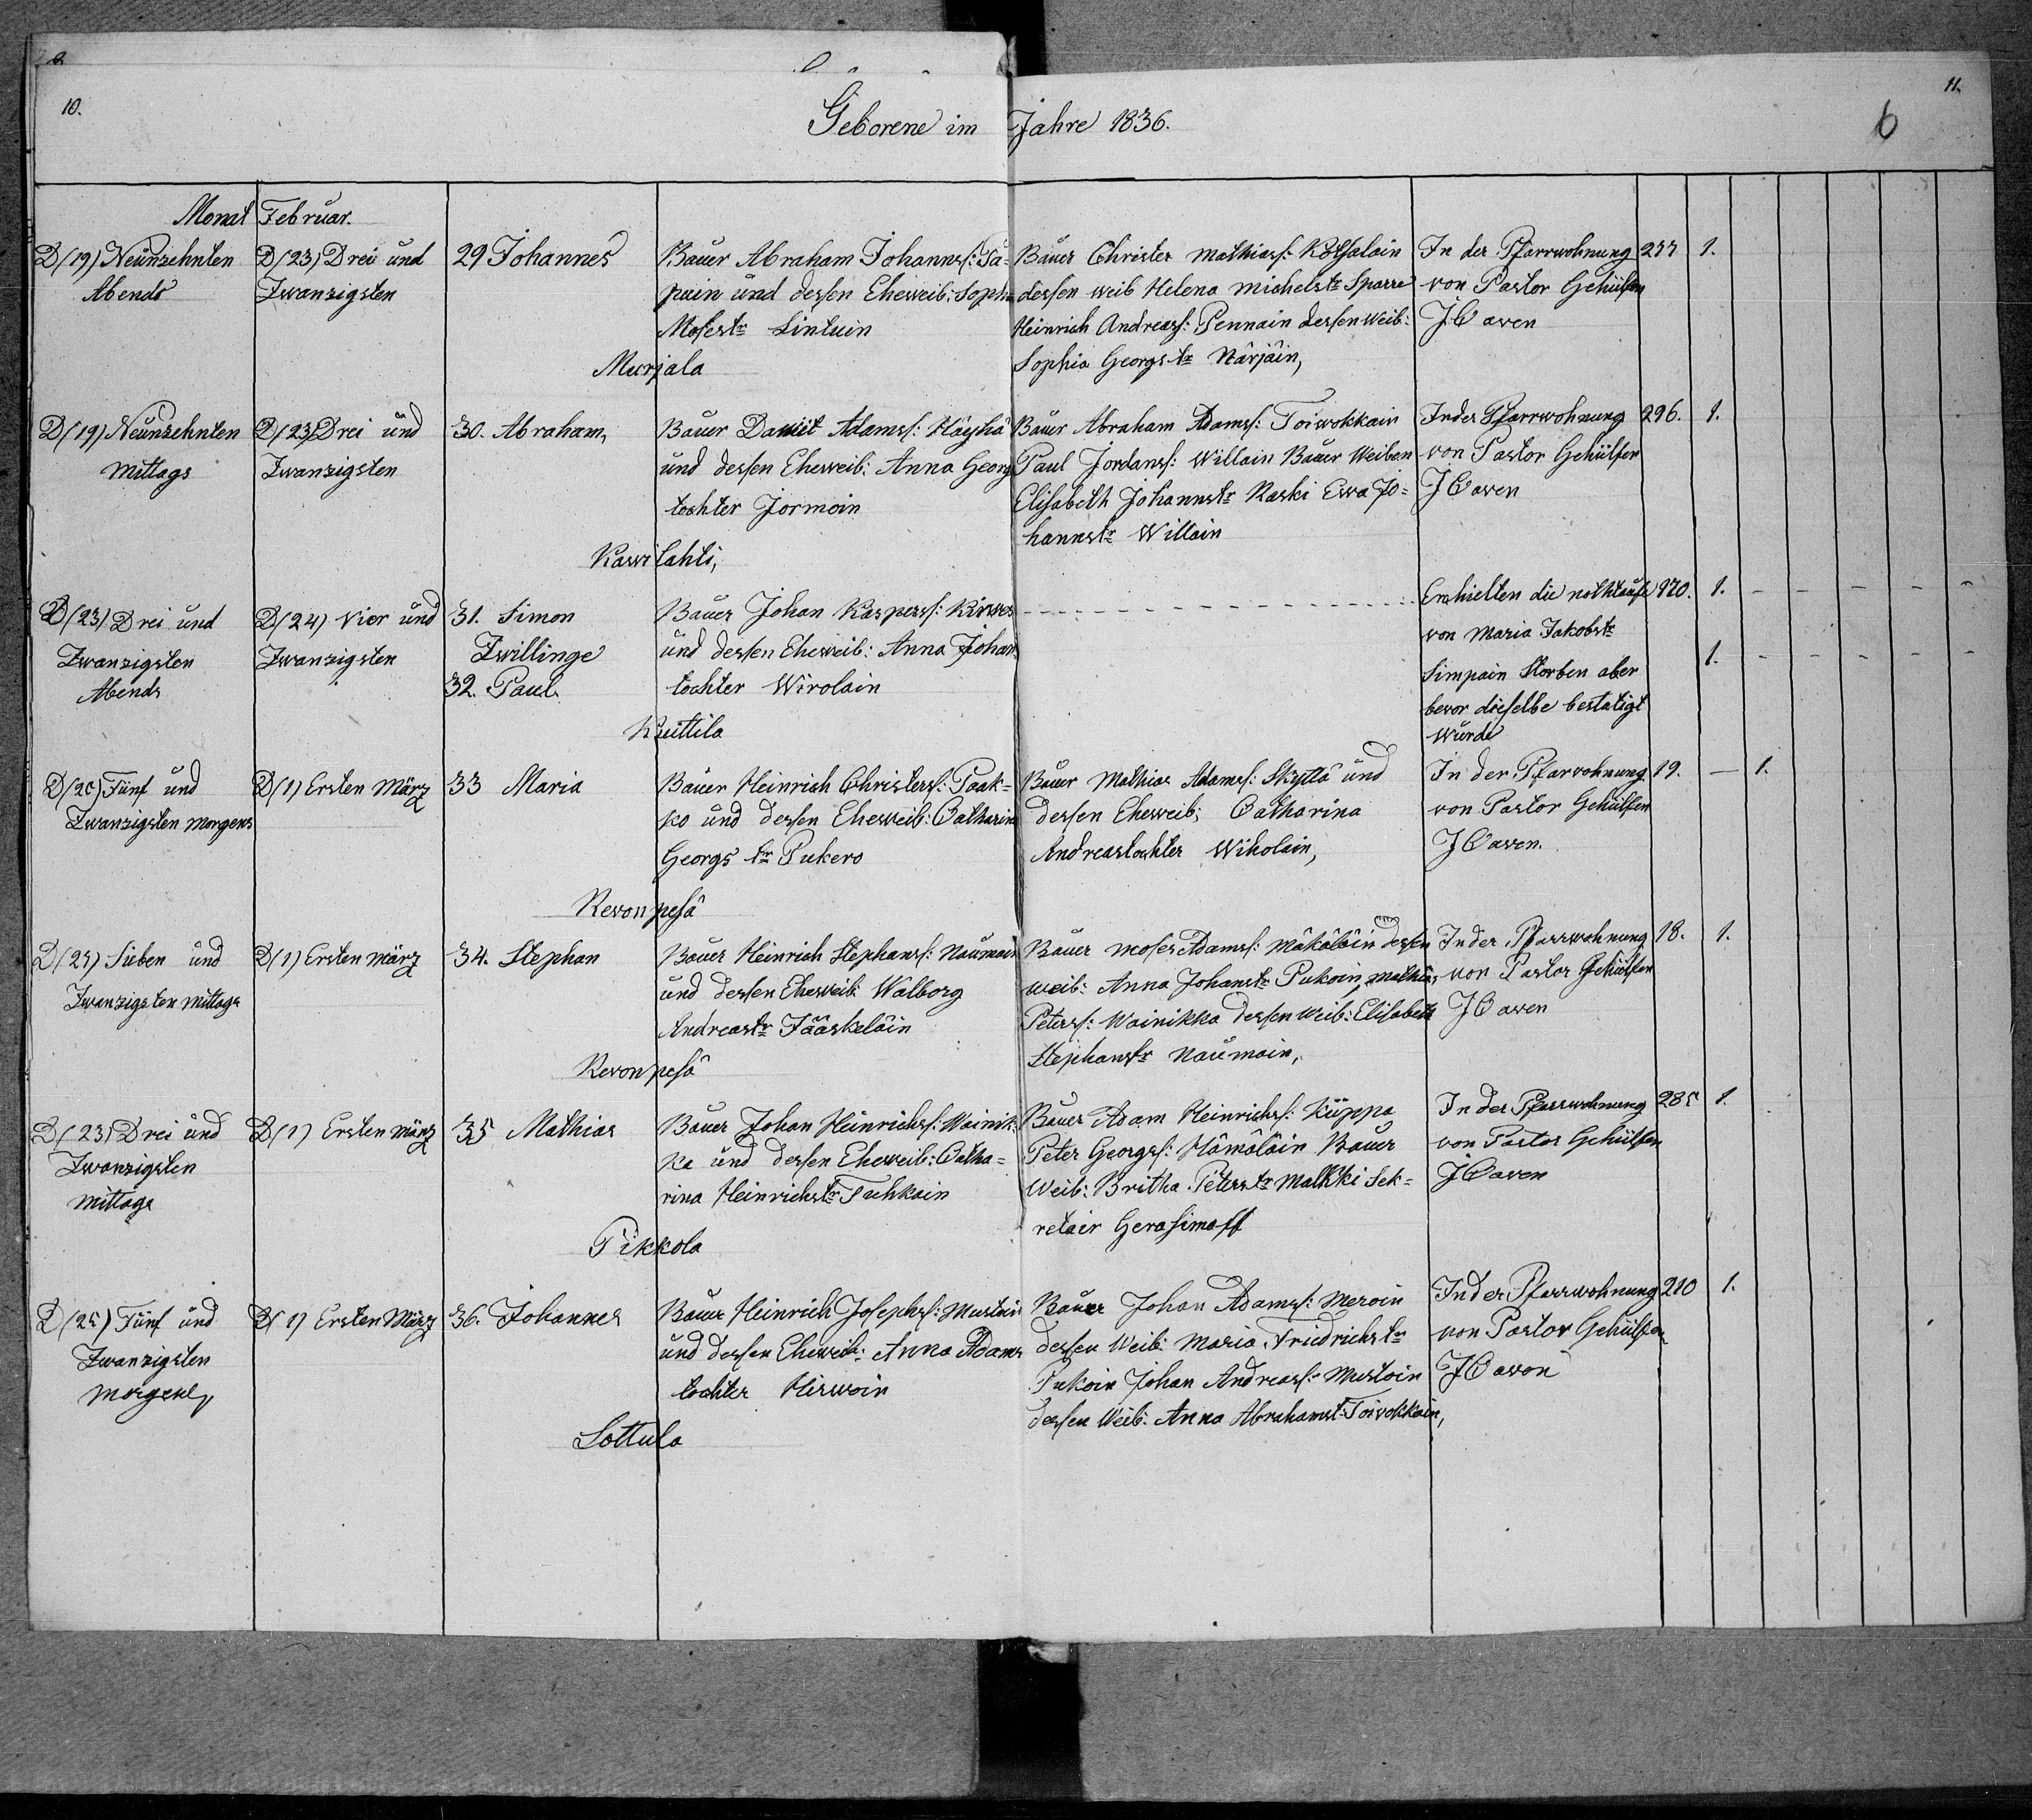 10.
11.
Geborene im Jahre 1836.
6
Monat Februar.
D (19) Neünzehnten
Abends
D (23) Drei und
Zwanzigsten
29 Johannes
Bauer Abraham Johannsf: Pa-
puin und dessen Eheweib: Sophia
Mosestr Lintuin
Murjala
Bauer Christer Mathiasf:
dessen weib Helena Michelstr Sparre
Heinrich Andreasf: Pennain dessen Weib:
Sophia Georgstr Närjäin,
In der Pfarrwohnung
von Pastor Gehülfen
J Caven
277
1.
D (19) Neünzehnten
Mittags
D (23) Drei und
Zwanzigsten
30. Abraham,
Bauer Dawiit Adamsf: Häyhä
und dessen Eheweib: Anna Georg
tochter Jormoin
Kawilahti,
Bauer Abraham Adamsf: Toiwokkain
Paul Jordansf: Willain Bauer Weiben
Elisabeth Johannstr Raski Ewa Jo-
hannstr Willain
In der Pfarrwohnung
von Pastor Gehülfen
J Caven
296.
1.
D (23) Drei und
Zwanzigsten
Abends
D (24) Vier und
Zwanzigsten
31. Simon
Zwillinge
32. Paul.
Bauer Johan Kaspersf: Kirves
und dessen Eheweib: Anna Johan
tochter Wirolain
Kuittila
Erhielten die nothtaufe
von Maria Jakobstr
Simpain Storben aber
bevor dieselbe bestatigt
wurde
170.
1.
1.
D (25) Fünf und
Zwanzigsten Morgens
D (1) Ersten März
33 Maria
Bauer Heinrich Christersf: Paak-
ko und dessen Eheweib: Catharina
Georgs tr Pukero
Revonpesä
Bauer Mathias Adamsf: Skyttä und
dessen Eheweib: Catharina
Andreastochter Wiholain,
In der Pfarvohnung
von Pastor Gehülfen
J Caven.
19.
— 1.
D (27) Sieben und
Zwanzigsten Mittags
D (1) Ersten März
34. Stephan
Bauer Heinrich Stephansf: Naumain
und dessen Eheweib: Walborg
Andreastr Jääskeläin
Revonpesä
Bauer Moses Adamsf: Mäkäläin dessen
weib: Anna Johanstr Pukoin, Mathias
Petersf: Wainikka dessen Weib: Elisabeth
Stephanstr Naumain,
In der Pfarrwohnung
von Pastor Gehülfen
J Caven
18.
1.
D (23) Drei und
Zwanzigsten
Mittags
D (1) Ersten März
35 Mathias
Bauer Johan Heinrichsf: Wainik-
ka und dessen Eheweib: Catha-
rina Heinrichstr Tuhkain
Pikkola
Bauer Adam Heinrichsf: Küppa
Peter Georgsf: Hämäläin Bauer
Weib: Britha Peterstr Malkki Sek-
retair Gerasimoff
In der Pfarrwohnung
von Pastor Gehülfen
J Caven
285
1.
D (25) Fünf und
Zwanzigsten
Morgens,
D (1) Ersten März
36. Johannes
Bauer Heinrich Josephsf: Mustoin
und dessen Eheweib: Anna Adams
tochter Hirwoin
Sottula
Bauer Johan Adamsf: Meroin
dessen Weib: Maria Friedrichstr
Pukoin Johan Andreasf: Mustoin
dessen Weib: Anna Abrahamstr Toivokkain,
In der Pfarrwohnung
von Pastor Gehülfen
J Caven
210
1.